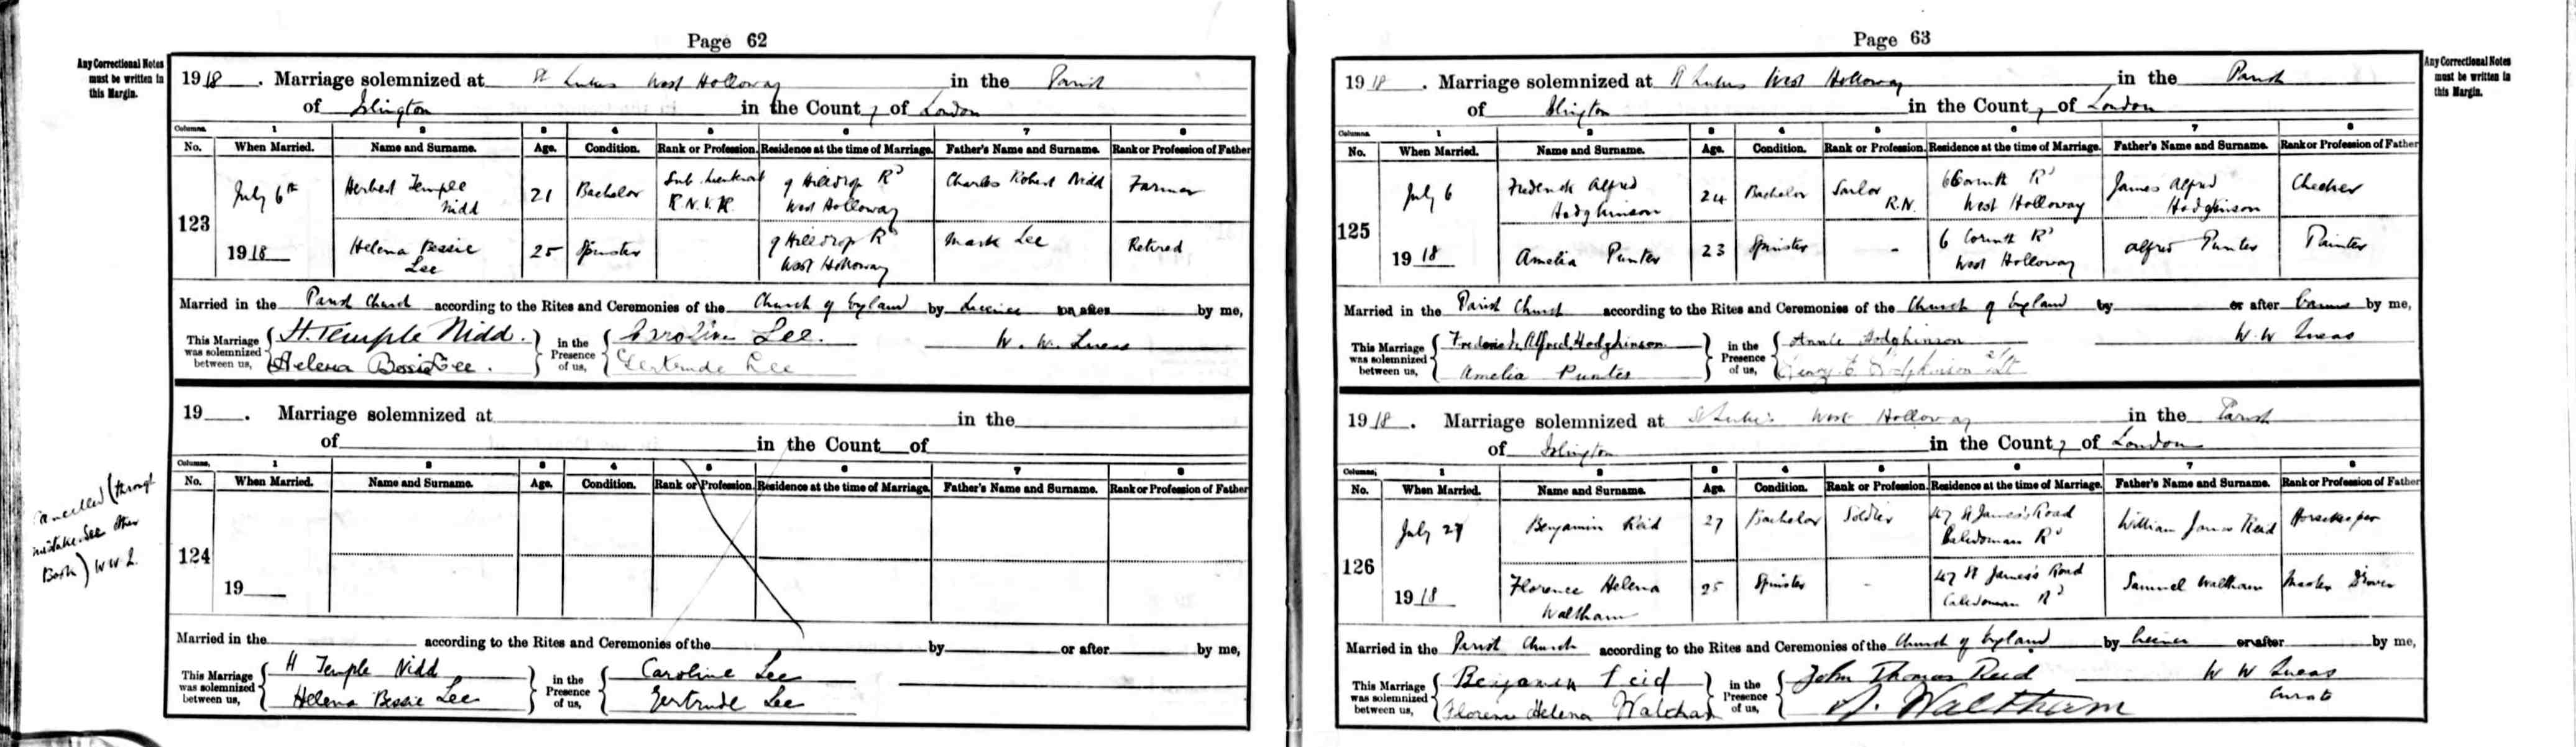 Page 62
Any Correctional Notes
must be written in
this Margin.
1918. Marriage solemnized at St Lukes West Holloway in the Parish
of Islington in the County of London
Columns. 1 2 3 4 5 6 7 8
No. When Married. Name and Surname. Age. Condition. Rank or Profession. Residence at the time of Marriage. Father's Name and Surname. Rank or Profession of Father
123
July 6th
1918
Herbert Temple
Nidd
21
Bachelor
Sub. Lieutenant
R.N.V.R.
9 Hilldrop Rd
West Holloway
Charles Robert Nidd
Farmer
Helena Bessie
Lee
25
Spinster
9 Hilldrop Rd
West Holloway
Mark Lee
Retired
Married in the Parish Church according to the Rites and Ceremonies of the Church of England by Licence or after by me,
This Marriage
was solemnized
between us,
H. Temple Nidd.
Helena Bessie Lee.
in the
Presence
of us,
Caroline Lee.
Gertrude Lee
W. W. Lucas
19 . Marriage solemnized at in the
of in the Count of
Columns. 1 2 3 4 5 6 7 8
No. When Married. Name and Surname. Age. Condition. Rank or Profession. Residence at the time of Marriage. Father's Name and Surname. Rank or Profession of Father
Cancelled (through
mistake. See other
Book) W W L.
124
19
Married in the according to the Rites and Ceremonies of the by or after by me,
This Marriage
was solemnized
between us,
H Temple Nidd
Helena Bessie Lee
in the
Presence
of us,
Caroline Lee
Gertrude Lee
Page 63
Any Correctional Notes
must be written in
this Margin.
1918. Marriage solemnized at St Lukes West Holloway in the Parish
of Islington in the County of London
Columns. 1 2 3 4 5 6 7 8
No. When Married. Name and Surname. Age. Condition. Rank or Profession. Residence at the time of Marriage. Father's Name and Surname. Rank or Profession of Father
125
July 6
1918
Frederick Alfred
Hodghinson
24
Bachelor
Sailor
R.N.
6 Corinth Rd
West Holloway
James Alfred
Hodghinson
Checker
Amelia Punter
23
Spinster
-
6 Corinth Rd
West Holloway
Alfred Punter
Painter
Married in the Parish Church according to the Rites and Ceremonies of the Church of England by or after Banns by me,
This Marriage
was solemnized
between us,
Frederick Alfred Hodghinson
Amelia Punter
in the
Presence
of us,
Annie Hodghinson
Henry E. Hodghinson 2/Lt
W. W Lucas
1918. Marriage solemnized at St Luke's West Holloway in the Parish
of Islington in the County of London
Columns. 1 2 3 4 5 6 7 8
No. When Married. Name and Surname. Age. Condition. Rank or Profession. Residence at the time of Marriage. Father's Name and Surname. Rank or Profession of Father
126
July 27
1918
Benjamin Reid
27
Bachelor
Soldier
47 St James's Road
Caledonian Rd
William James Reid
Horsekeeper
Florence Helena
Waltham
25
Spinster
-
47 St James's Road
Caledonian Rd
Samuel Waltham
Master Drover
Married in the Parish Church according to the Rites and Ceremonies of the Church of England by Licence or after by me,
This Marriage
was solemnized
between us,
Benjamin Reid
Florence Helena Waltham
in the
Presence
of us,
John Thomas Reid
Waltham
W W Lucas
Curate